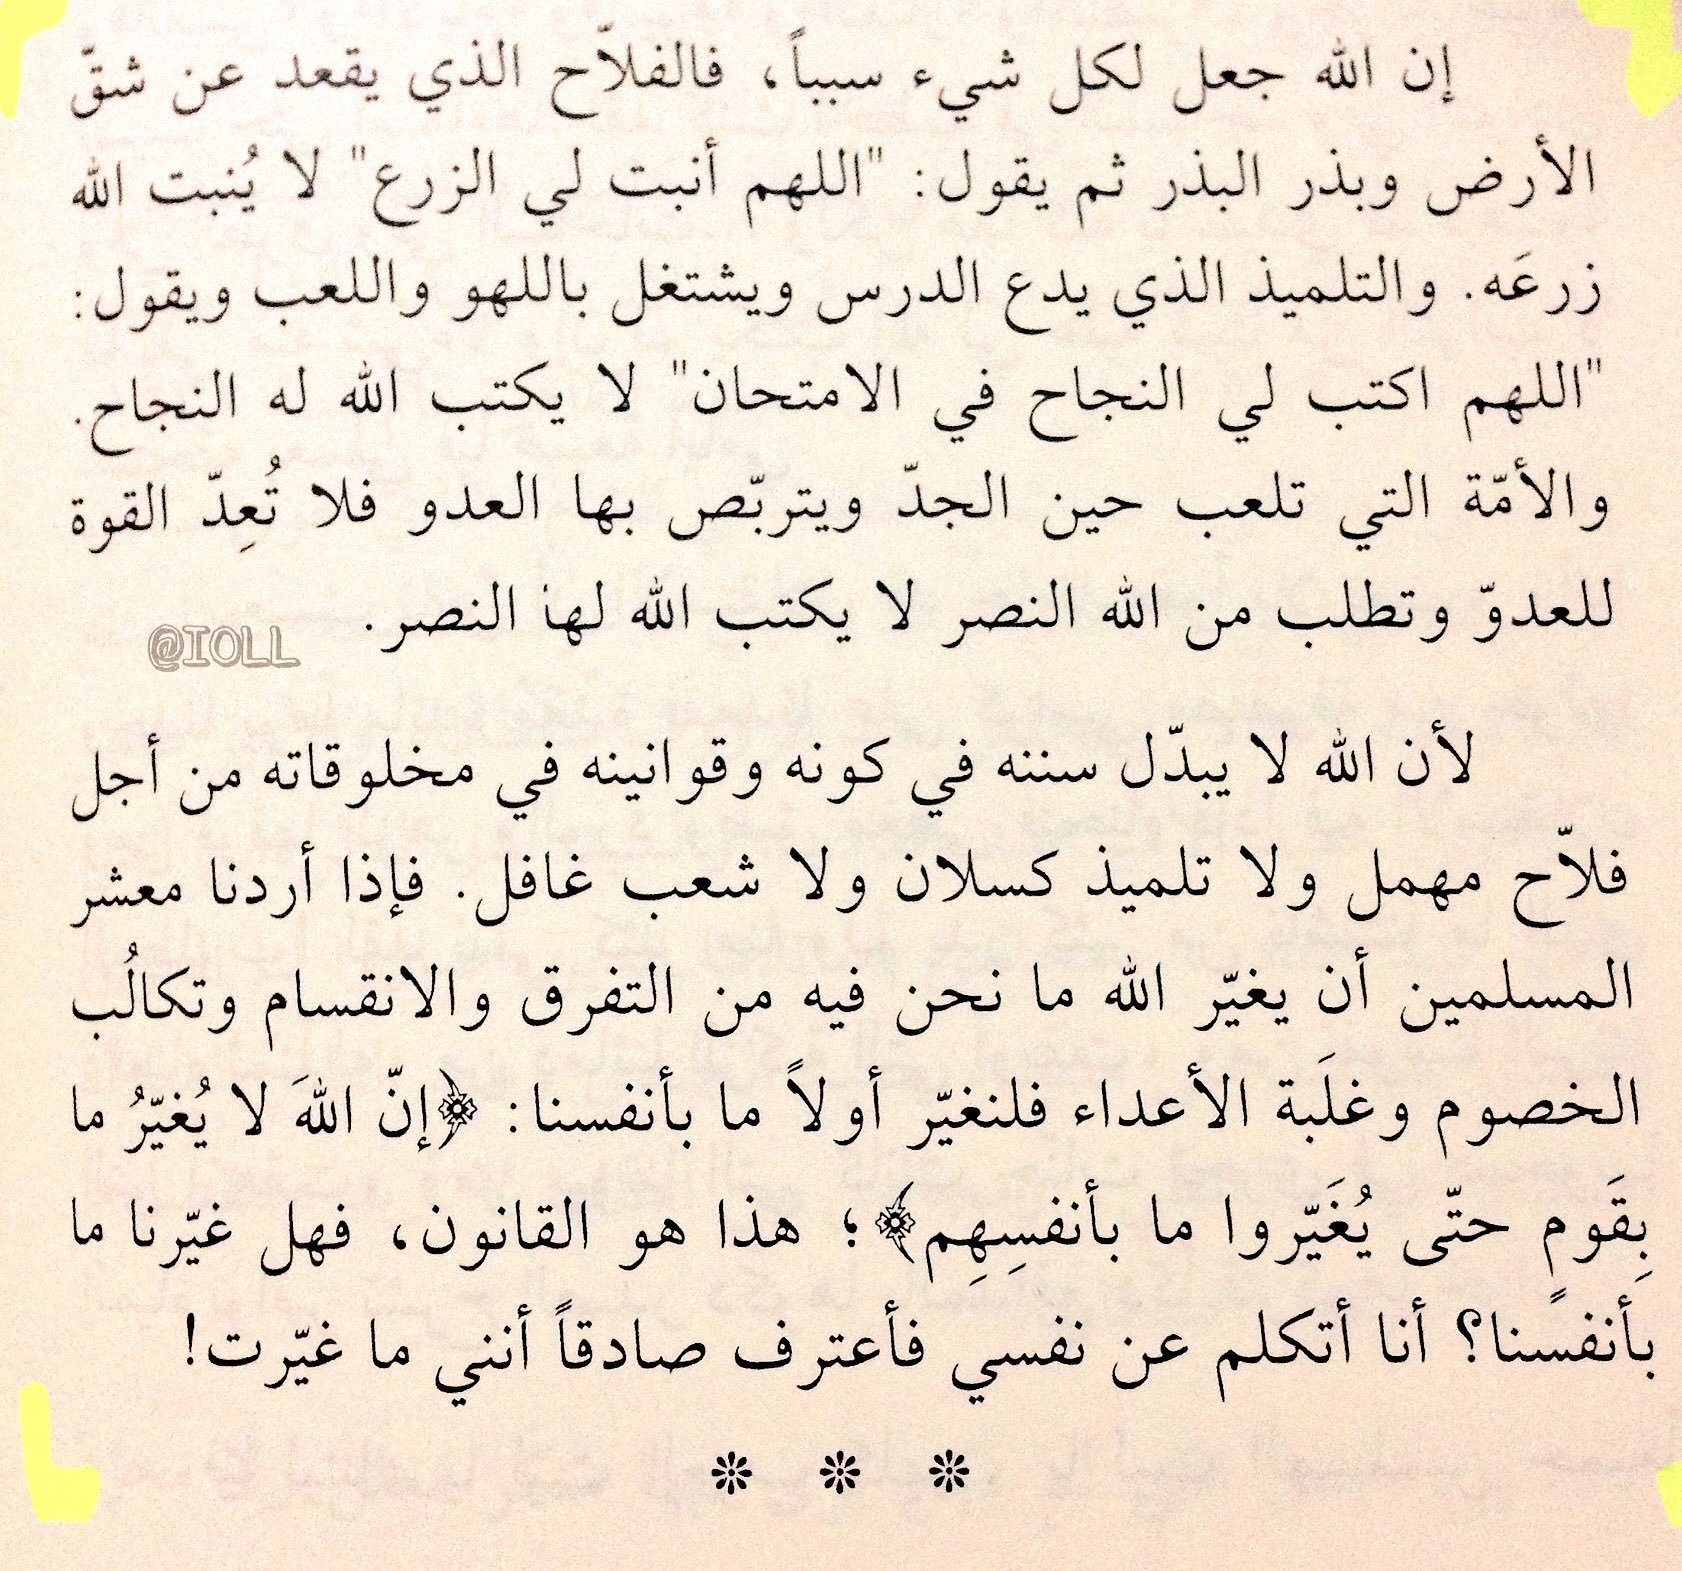 إن الله جعل لكل شيء سبباً، فالفلاّح الذي يقعد عن شقّ
الأرض وبذر البذر ثم يقول: "اللهم أنبت لي الزرع" لا يُنبت الله
زرعَه. والتلميذ الذي يدع الدرس ويشتغل باللهو واللعب ويقول:
"اللهم اكتب لي النجاح في الامتحان" لا يكتب الله له النجاح.
والأمّة التي تلعب حين الجدّ ويتربّص بها العدو فلا تُعِدّ القوة
للعدوّ وتطلب من الله النصر لا يكتب الله لها النصر.
@IOLL
لأن الله لا يبدّل سننه في كونه وقوانينه في مخلوقاته من أجل
فلاّح مهمل ولا تلميذ كسلان ولا شعب غافل. فإذا أردنا معشر
المسلمين أن يغيّر الله ما نحن فيه من التفرق والانقسام وتكالُب
الخصوم وغلَبة الأعداء فلنغيّر أولاً ما بأنفسنا: ﴿إنّ اللهَ لا يُغيّرُ ما
بِقَومٍ حتّى يُغَيّروا ما بأنفسِهِم﴾؛ هذا هو القانون، فهل غيّرنا ما
بأنفسنا؟ أنا أتكلم عن نفسي فأعترف صادقاً أنني ما غيّرت!
❊ ❊ ❊